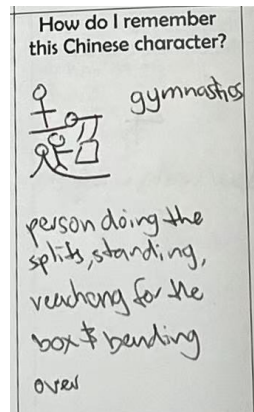 How do I remember
this Chinese character?
gymnastics
person doing the
splits, standing,
reaching for the
box & bending
over